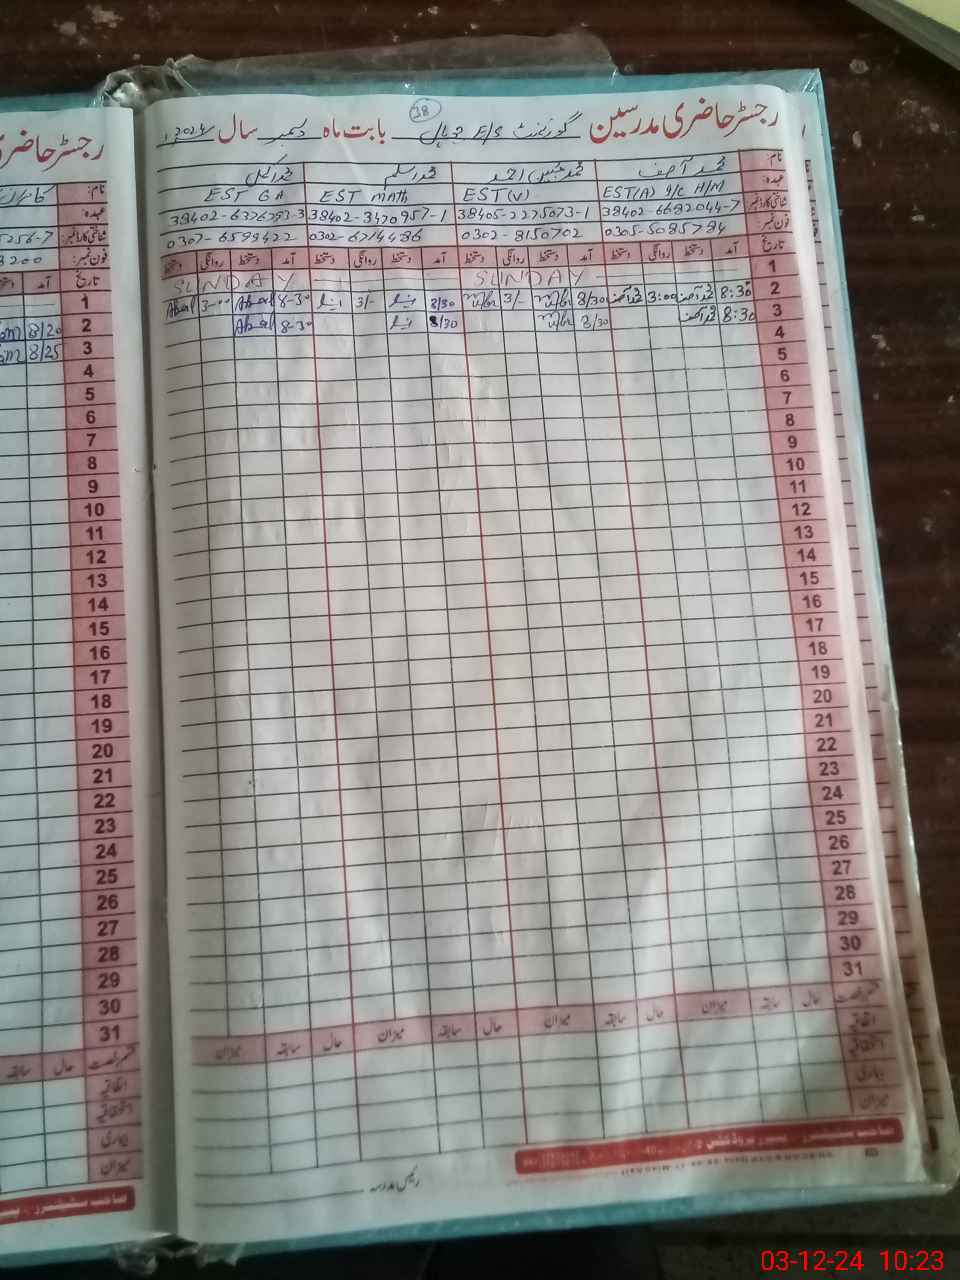 38
رجسٹر حاضری مدرسین گورنمنٹ E/S بابت ماہ دسمبر سال 2024
نام: محمد آصف محمد اسلم
عہدہ: EST(A) I/C H/M EST(V) EST math EST GA
شناختی کارڈ نمبر: 38402-6682044-7 38405-2275073-1 38402-3470957-1
فون نمبر: 0305-5085784 0302-8150702 0302-6714486 0307-6599422
تاریخ آمد دستخط روانگی دستخط آمد دستخط روانگی دستخط آمد دستخط روانگی دستخط آمد دستخط روانگی دستخط
1 SUNDAY SUNDAY
2 8:30 محمد آصف 3:00 محمد آصف 8/30 3/- 8/30 3/- 8-30 3-00
3 8:30 محمد آصف 8/30 8/30 8-30
4
5
6
7
8
9
10
11
12
13
14
15
16
17
18
19
20
21
22
23
24
25
26
27
28
29
30
31
قسم رخصت حال سابقہ میزان حال سابقہ میزان حال سابقہ میزان حال سابقہ میزان
اتفاقیہ
استحقاقیہ
بیماری
میزان
رئیس مدرسہ
رجسٹر حاضری
نام:
عہدہ:
شناختی کارڈ نمبر: 5256-7
فون نمبر: 3200
تاریخ آمد
1
2 8/20
3 8/25
4
5
6
7
8
9
10
11
12
13
14
15
16
17
18
19
20
21
22
23
24
25
26
27
28
29
30
31
قسم رخصت حال سابقہ
اتفاقیہ
استحقاقیہ
بیماری
میزان
03-12-24 10:23